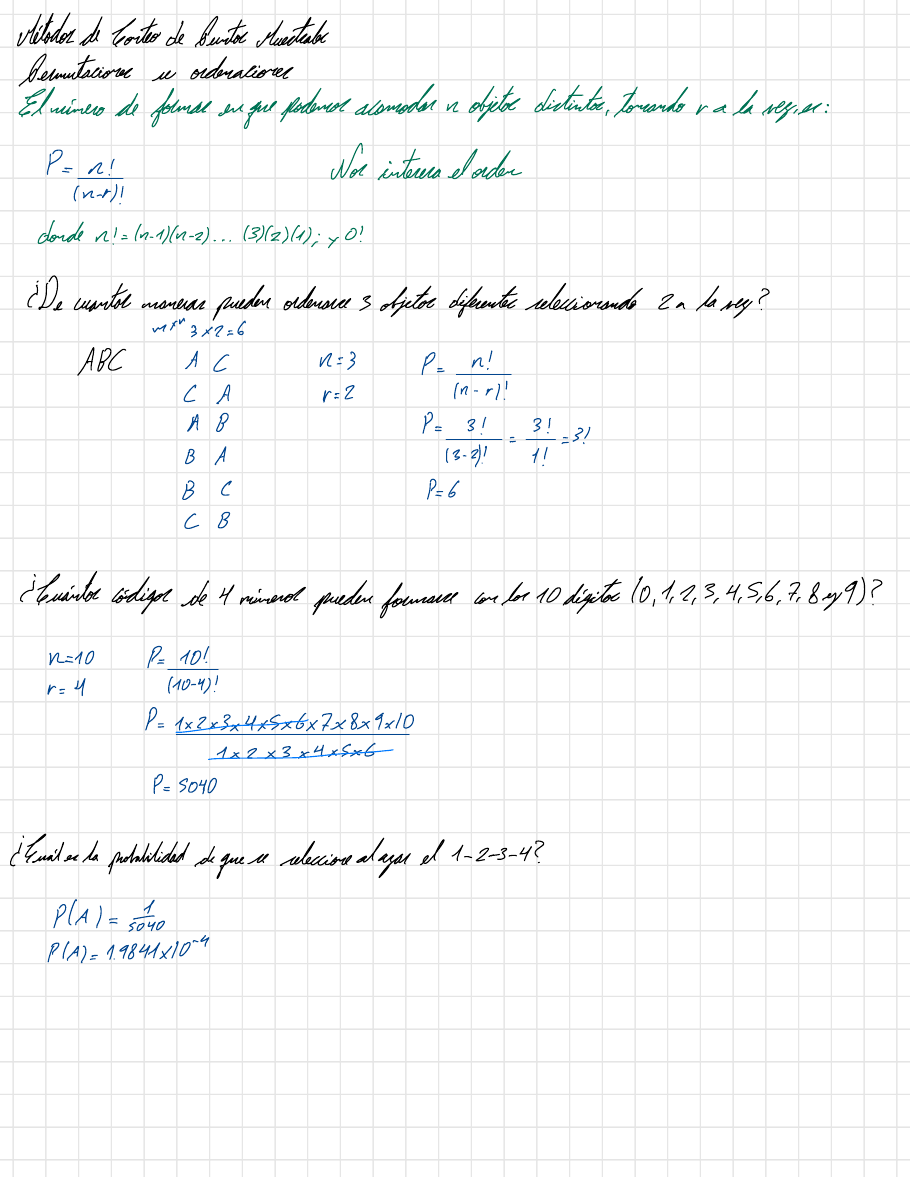 Métodos de Conteo de Puntos Muestrales
Permutaciones u ordenaciones
El número de formas en que podemos acomodar n objetos distintos, tomando r a la vez, es:
P = n! / (n-r)!
Nos interesa el orden
donde n! = (n-1)(n-2)... (3)(2)(1); y 0!
¿De cuantas maneras pueden ordenarse 3 objetos diferentes seleccionando 2 a la vez?
m*n 3×2=6
ABC
A C
C A
A B
B A
B C
C B
n=3
r=2
P= n! / (n-r)!
P= 3! / (3-2)! = 3! / 1! = 3!
P=6
¿Cuántos códigos de 4 números pueden formarse con los 10 dígitos (0,1,2,3,4,5,6,7,8 y 9)?
n=10
r=4
P= 10! / (10-4)!
P= 1×2×3×4×5×6×7×8×9×10 / 1×2×3×4×5×6
P= 5040
¿Cuál es la probabilidad de que se seleccione al azar el 1-2-3-4?
P(A) = 1 / 5040
P(A) = 1.9841×10⁻⁴